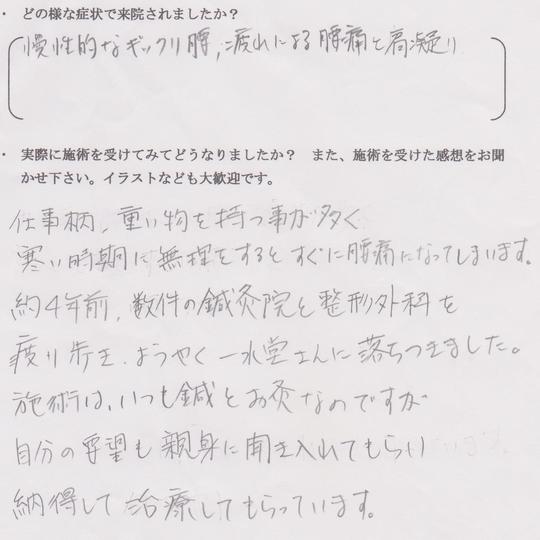 ・ どの様な症状で来院されましたか？
慢性的なギックリ腰，疲れによる腰痛と肩凝り
・ 実際に施術を受けてみてどうなりましたか？ また、施術を受けた感想をお聞
かせ下さい。イラストなども大歓迎です。
仕事柄，重い物を持つ事が多く
寒い時期に無理をするとすぐに腰痛になってしまいます。
約4年前，数件の鍼灸院と整形外科を
渡り歩き．ようやく一水堂さんに落ちつきました。
施術は，いつも鍼とお灸なのですが
自分の要望も親身に聞き入れてもらい
納得して治療してもらっています。